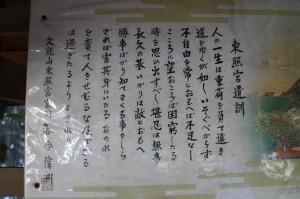 東照宮遺訓
人の一生は重荷を負て遠き
道をゆくが如し いそぐべからず
不自由を常とおもへば不足なし
こころに望おこらば困窮したる
時を思ひ出すべし 堪忍は無事
長久の基 いかりは敵とおもへ
勝事ばかり知てまくる事をしら
ざれば害其身にいたる おのれ
を責て人をせむるな 及ばざる
は過ぎたるよりまされり
久能山東照宮